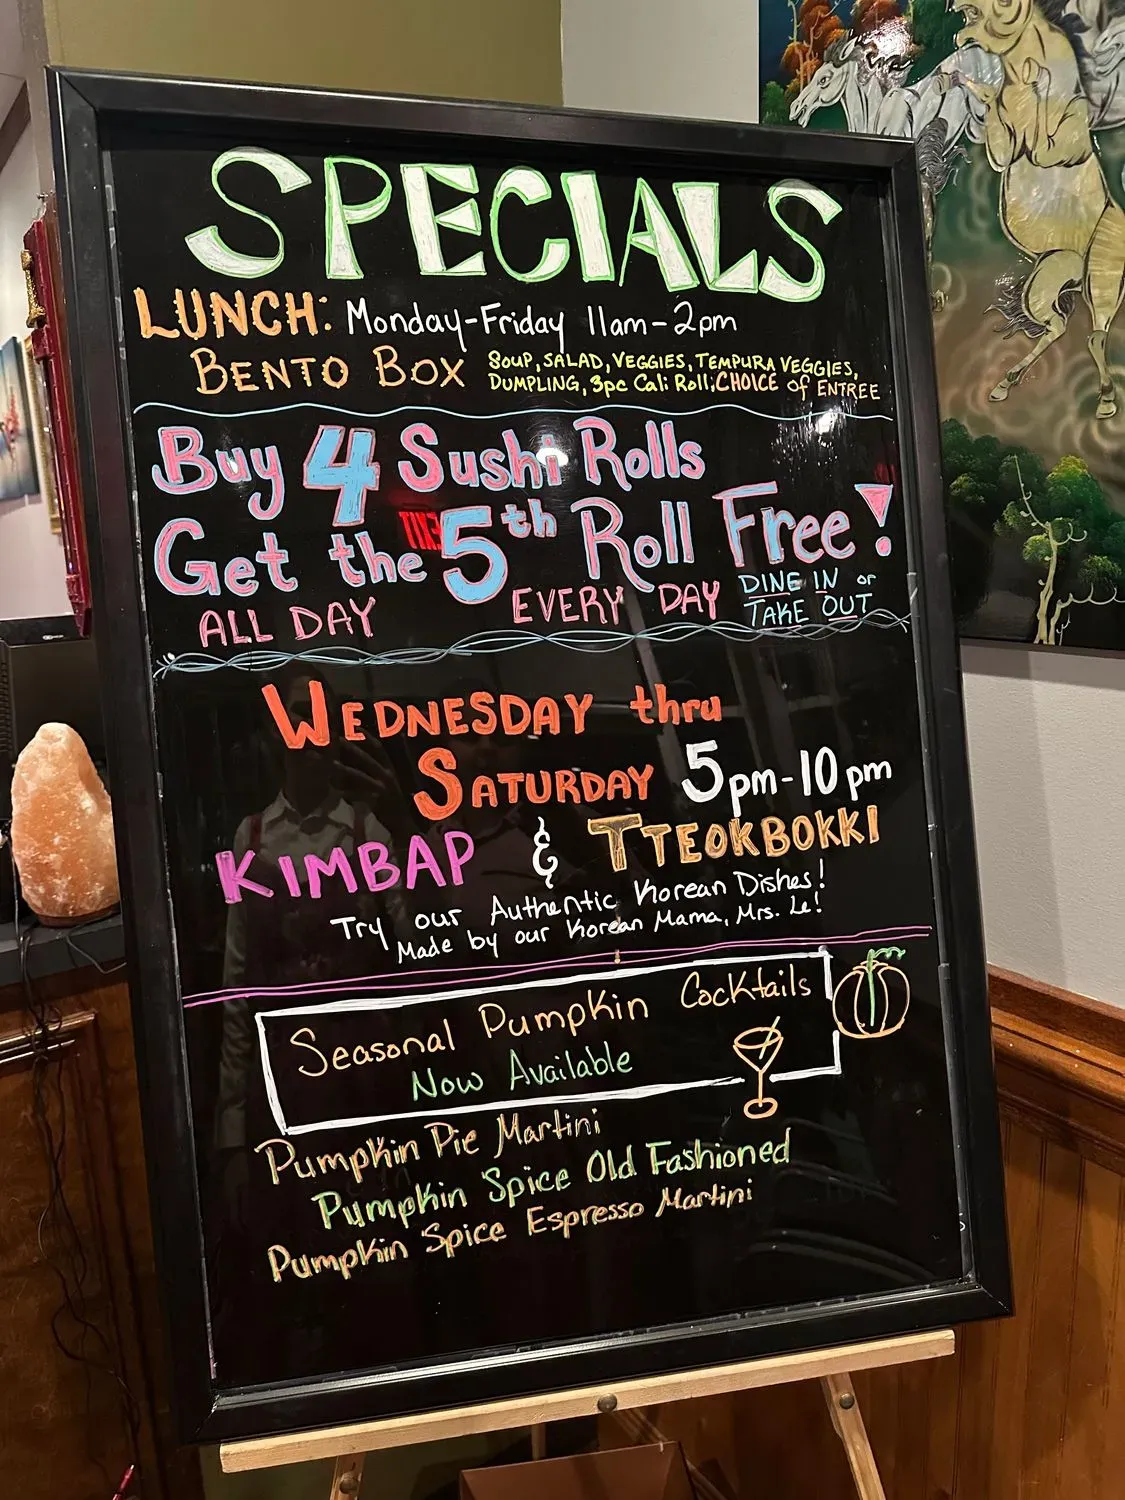 SPECIALS
LUNCH: Monday-Friday 11am-2pm
BENTO BOX SOUP, SALAD, VEGGIES, TEMPURA VEGGIES,
DUMPLING, 3pc Cali Roll, CHOICE of ENTREE
Buy 4 Sushi Rolls
Get the 5th Roll Free!
ALL DAY EVERY DAY DINE IN or
TAKE OUT
WEDNESDAY thru
SATURDAY 5pm-10pm
KIMBAP & TTEOKBOKKI
Try our Authentic Korean Dishes!
Made by our Korean Mama, Mrs. Le!
Seasonal Pumpkin Cocktails
Now Available
Pumpkin Pie Martini
Pumpkin Spice Old Fashioned
Pumpkin Spice Espresso Martini